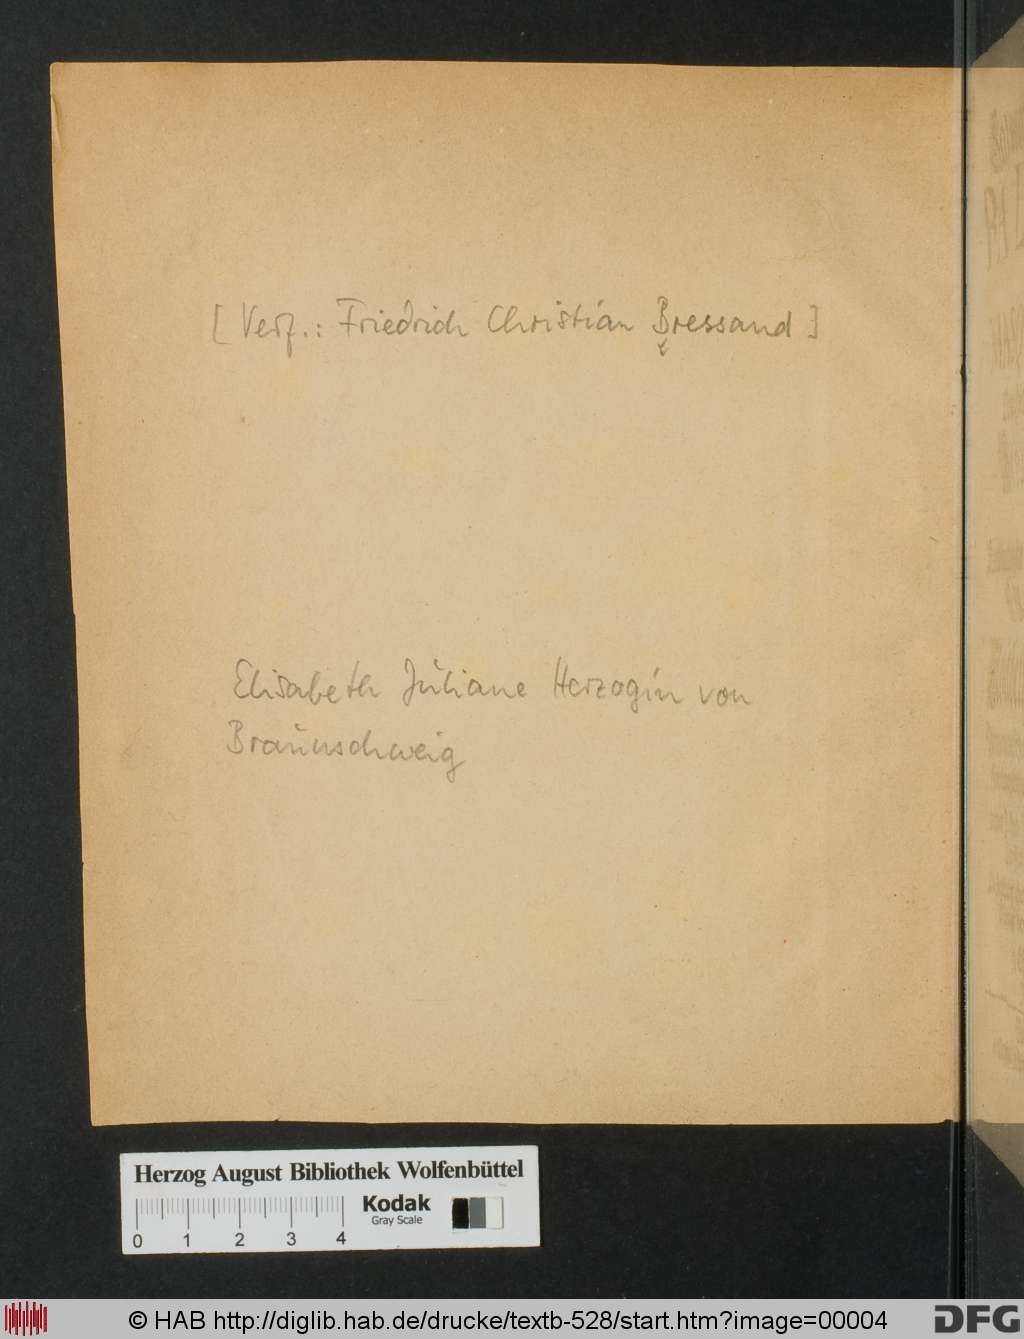 [Verf.: Friedrich Christian Bressand]
Elisabeth Juliane Herzogin von
Braunschweig
Herzog August Bibliothek Wolfenbüttel
Kodak
Gray Scale
0 1 2 3 4
© HAB http://diglib.hab.de/drucke/textb-528/start.htm?image=00004
DFG